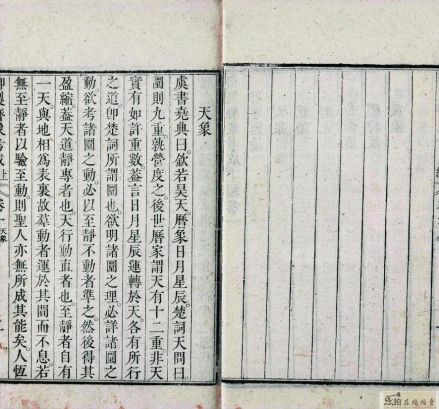 天象
虞書堯典曰欽若昊天曆象日月星辰楚詞天問曰
圜則九重孰營度之後世曆家謂天有十二重非天
實有如許重數葢言日月星辰運轉於天各有所行
之道卽楚詞所謂圜也欲明諸圜之理必詳諸圜之
動欲考諸圜之動必以至靜不動者準之然後得其
盈縮葢天道靜專者也天行動直者也至靜者自有
一天與地相為表裏故羣動者運於其間而不息若
無至靜者以驗至動則聖人亦無所成其能矣人恆
御製曆象考成上 卷一 天象
乐拍在线拍卖